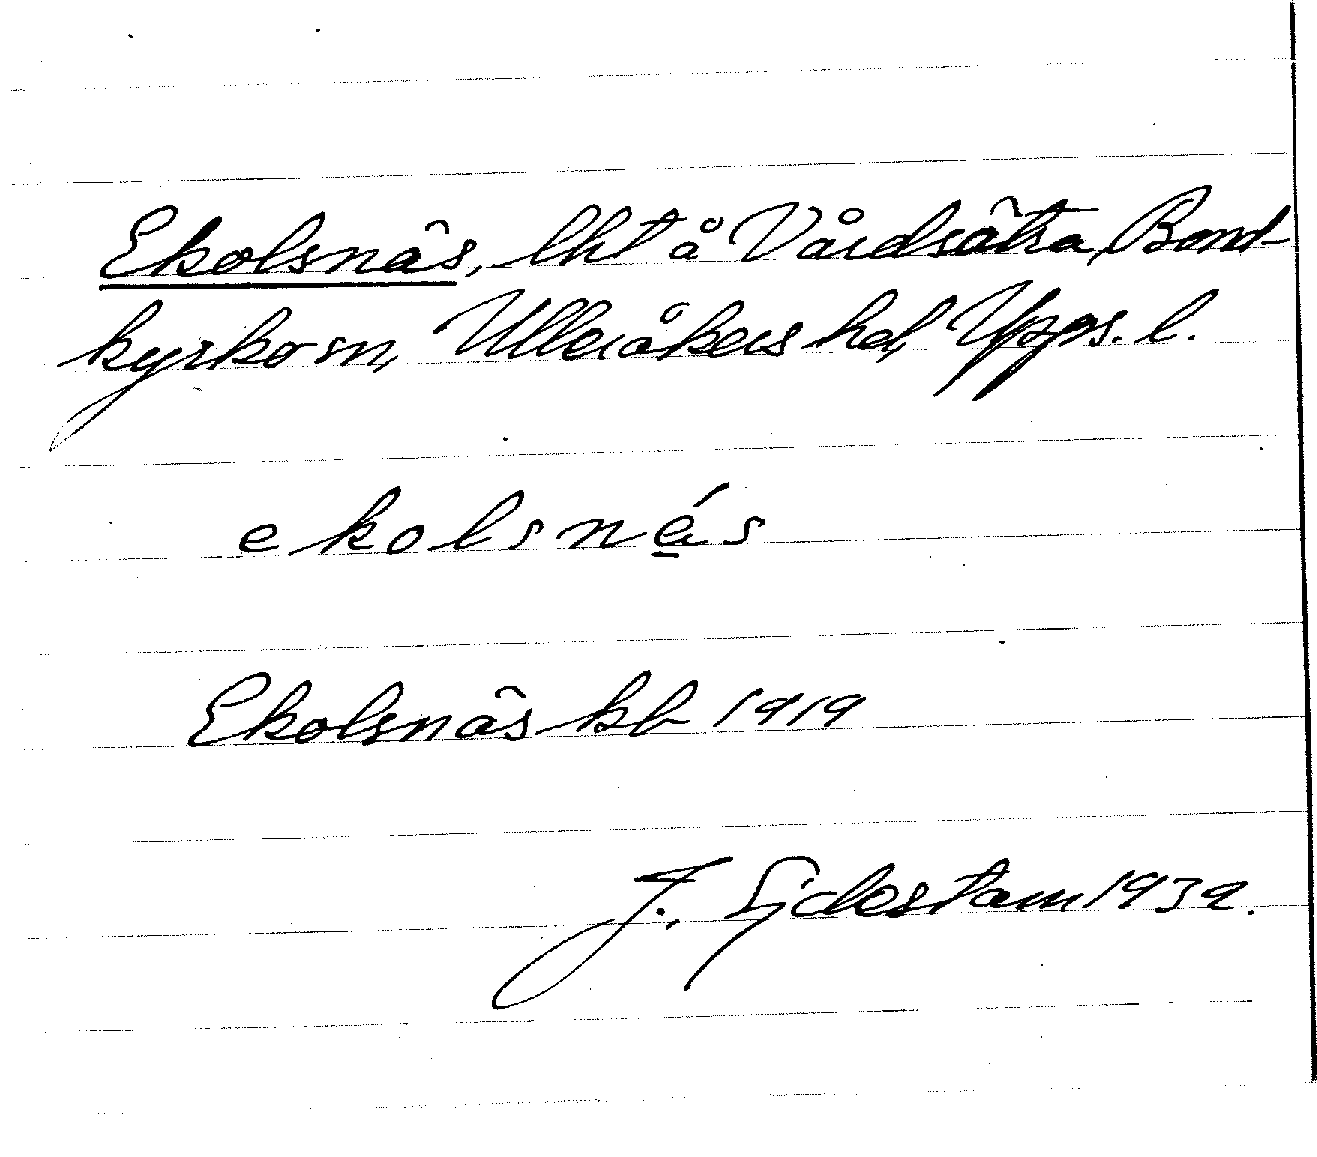 Ekolsnäs, lht å Vårdsätra, Bond-
kyrko sn, Ulleråkers hd, Upps. l.
ekolsnä́s
Ekolsnäs kb 1919
J. Sjdestam 1939.